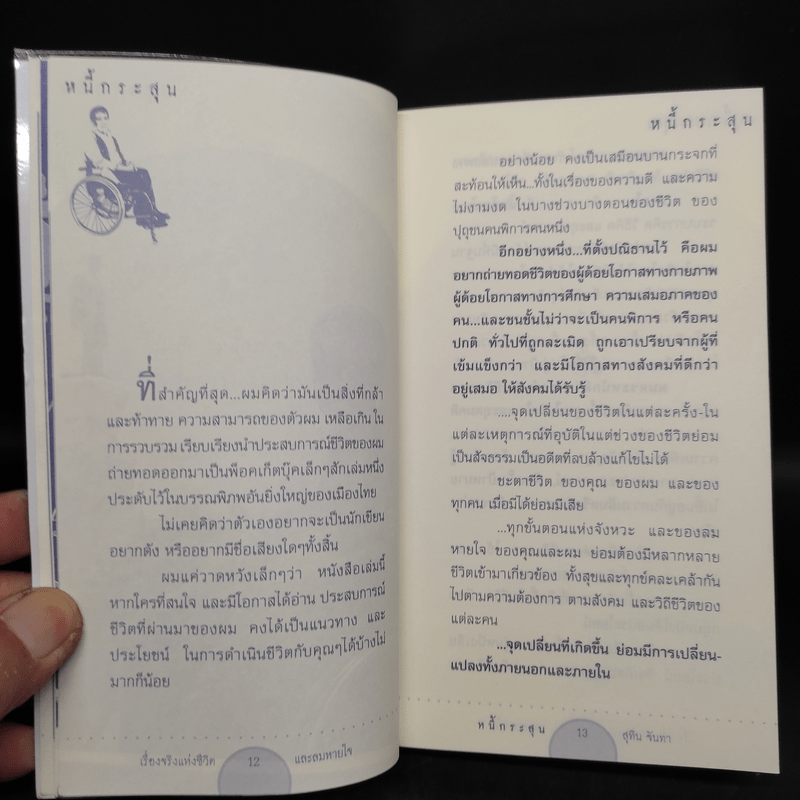 หนี้กระสุน
ที่สำคัญที่สุด...ผมคิดว่ามันเป็นสิ่งที่กล้า
และท้าทาย ความสามารถของตัวผม เหลือเกิน ใน
การรวบรวม เรียบเรียงนำประสบการณ์ชีวิตของผม
ถ่ายทอดออกมาเป็นพ็อคเก็ตบุ๊คเล็กๆสักเล่มหนึ่ง
ประดับไว้ในบรรณพิภพอันยิ่งใหญ่ของเมืองไทย
ไม่เคยคิดว่าตัวเองอยากจะเป็นนักเขียน
อยากดัง หรืออยากมีชื่อเสียงใดๆทั้งสิ้น
ผมแค่วาดหวังเล็กๆว่า หนังสือเล่มนี้
หากใครที่สนใจ และมีโอกาสได้อ่าน ประสบการณ์
ชีวิตที่ผ่านมาของผม คงได้เป็นแนวทาง และ
ประโยชน์ ในการดำเนินชีวิตกับคุณๆได้บ้างไม่
มากก็น้อย
เรื่องจริงแห่งชีวิต 12 และลมหายใจ
หนี้กระสุน
อย่างน้อย คงเป็นเสมือนบานกระจกที่
สะท้อนให้เห็น...ทั้งในเรื่องของความดี และความ
ไม่งามงด ในบางช่วงบางตอนของชีวิต ของ
ปุถุชนคนพิการคนหนึ่ง
อีกอย่างหนึ่ง...ที่ตั้งปณิธานไว้ คือผม
อยากถ่ายทอดชีวิตของผู้ด้อยโอกาสทางกายภาพ
ผู้ด้อยโอกาสทางการศึกษา ความเสมอภาคของ
คน...และชนชั้นไม่ว่าจะเป็นคนพิการ หรือคน
ปกติ ทั่วไปที่ถูกละเมิด ถูกเอาเปรียบจากผู้ที่
เข้มแข็งกว่า และมีโอกาสทางสังคมที่ดีกว่า
อยู่เสมอ ให้สังคมได้รับรู้
....จุดเปลี่ยนของชีวิตในแต่ละครั้ง-ใน
แต่ละเหตุการณ์ที่อุบัติในแต่ช่วงของชีวิตย่อม
เป็นสัจธรรมเป็นอดีตที่ลบล้างแก้ไขไม่ได้
ชะตาชีวิต ของคุณ ของผม และของ
ทุกคน เมื่อมีได้ย่อมมีเสีย
...ทุกขั้นตอนแห่งจังหวะ และของลม
หายใจ ของคุณและผม ย่อมต้องมีหลากหลาย
ชีวิตเข้ามาเกี่ยวข้อง ทั้งสุขและทุกข์คละเคล้ากัน
ไปตามความต้องการ ตามสังคม และวิถีชีวิตของ
แต่ละคน
...จุดเปลี่ยนที่เกิดขึ้น ย่อมมีการเปลี่ยน-
แปลงทั้งภายนอกและภายใน
หนี้กระสุน 13 สุทิน จันทา